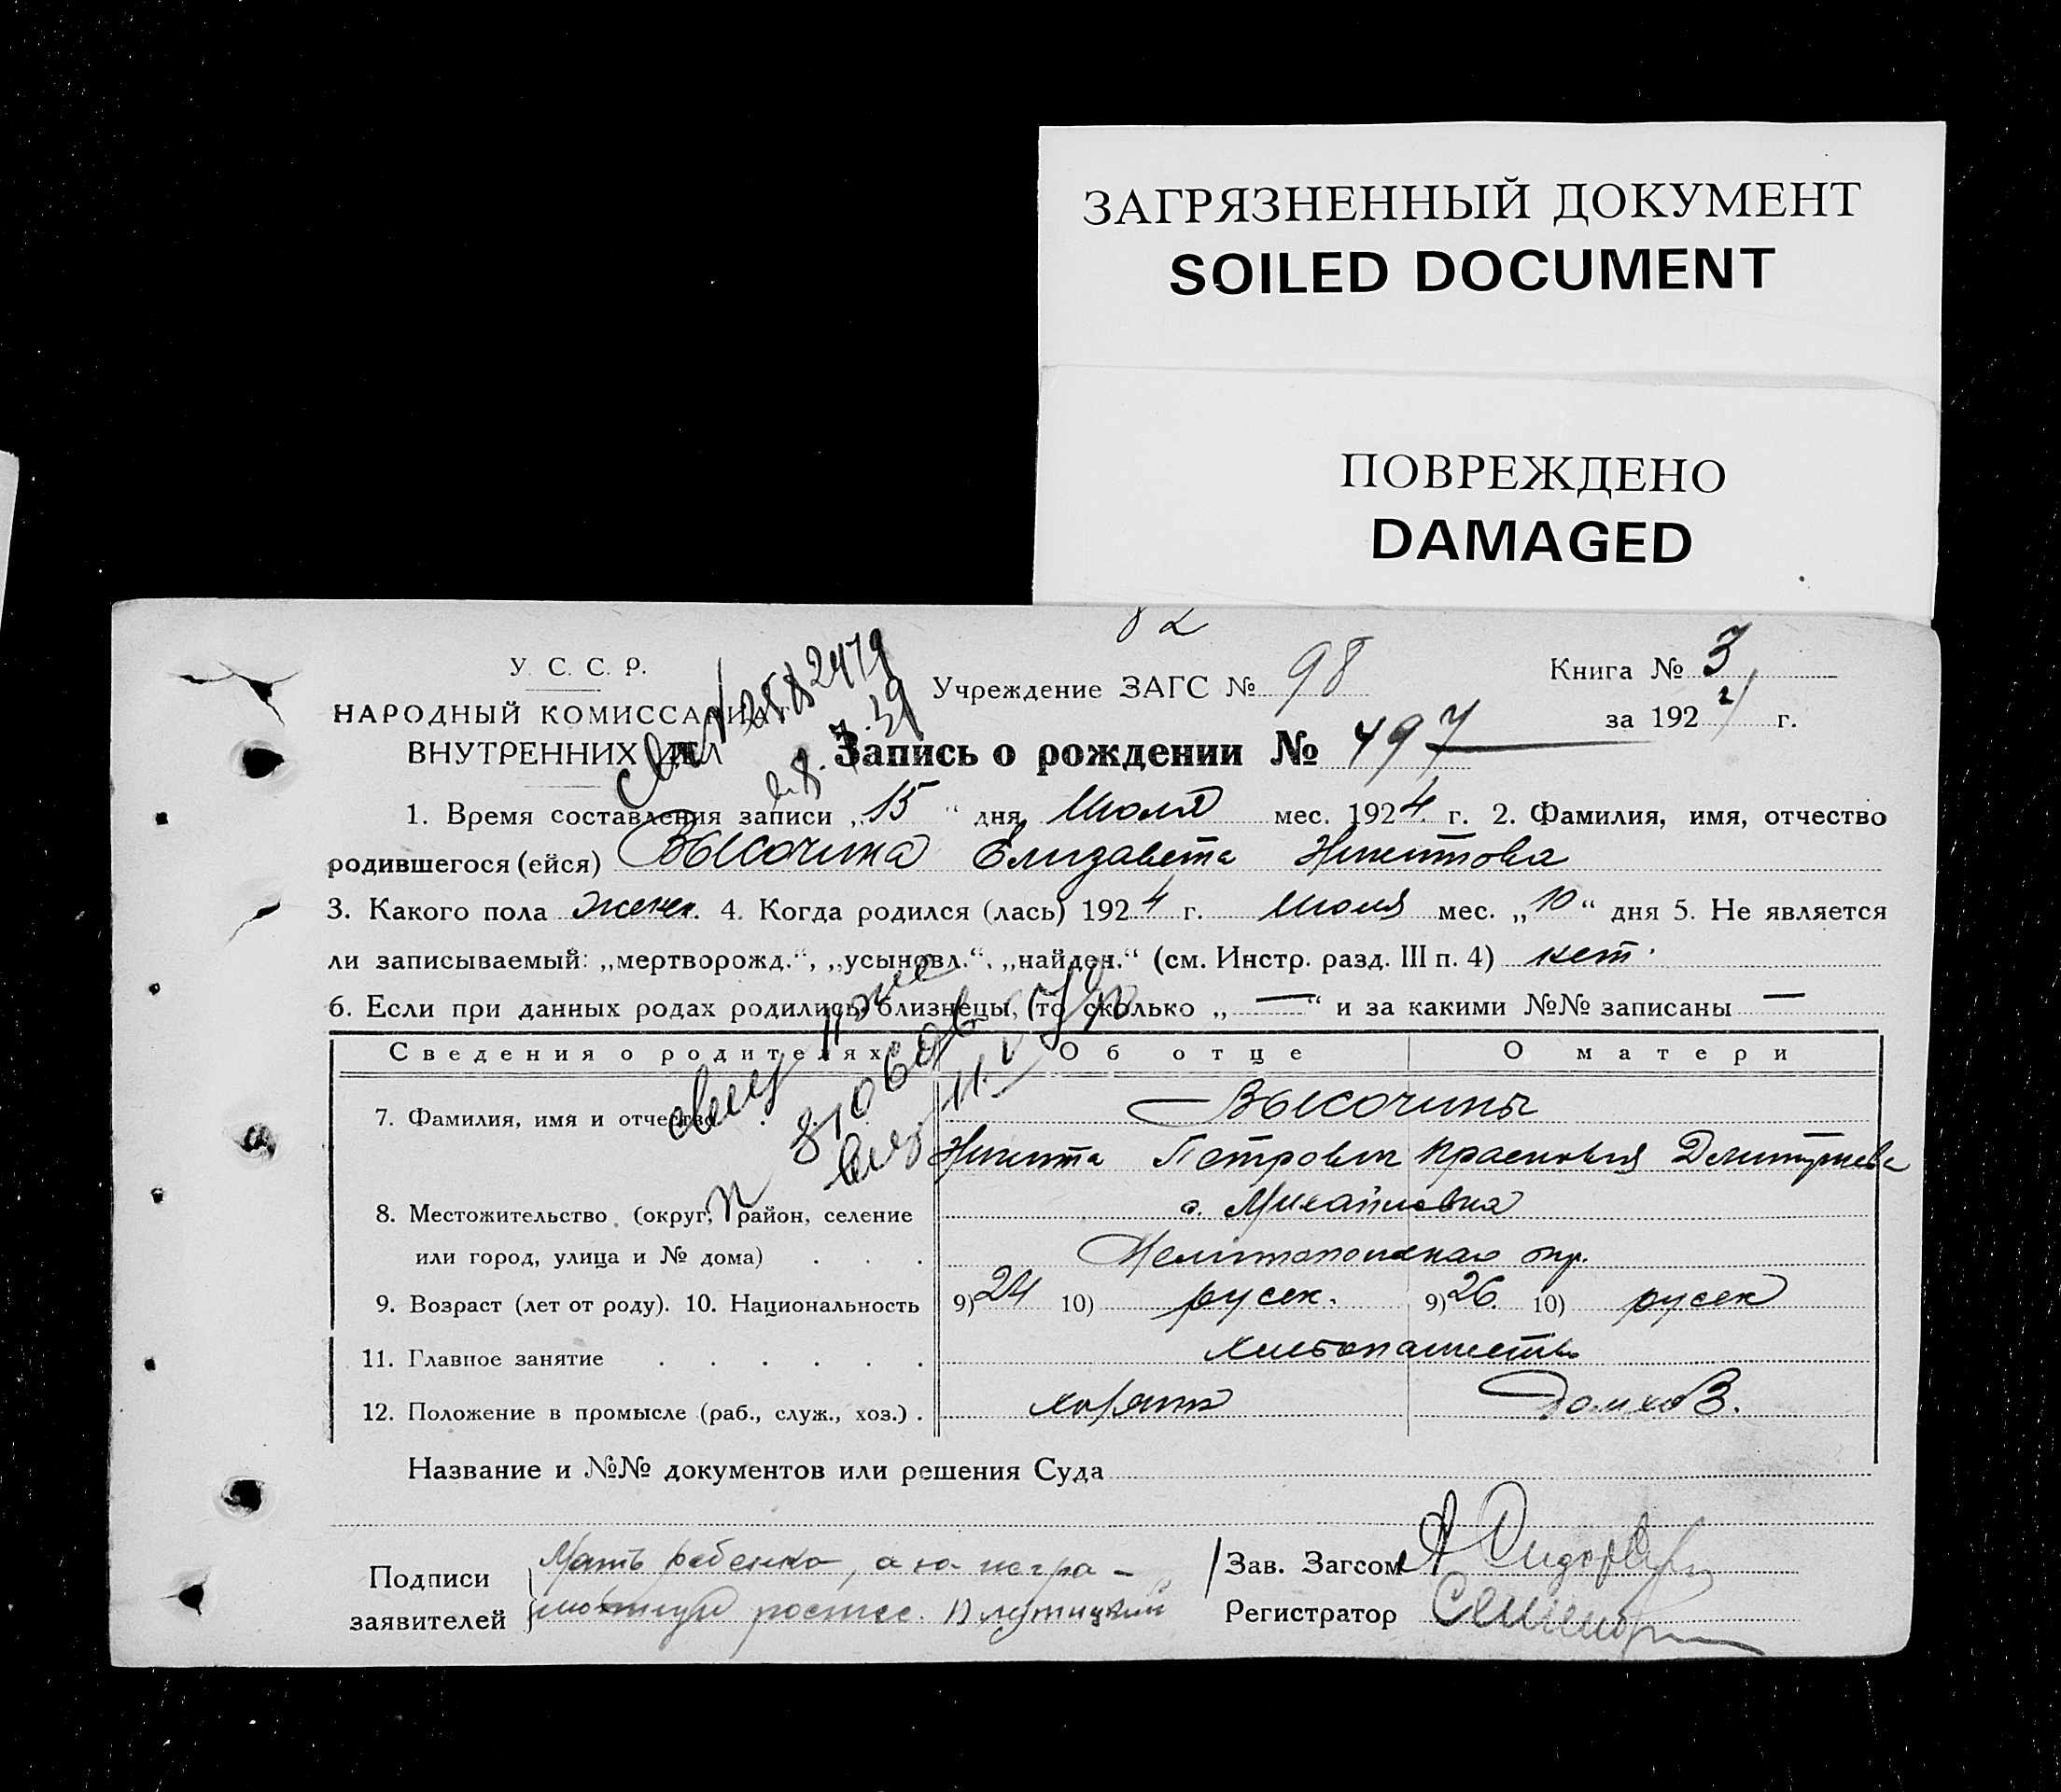 ЗАГРЯЗНЕННЫЙ ДОКУМЕНТ
SOILED DOCUMENT
ПОВРЕЖДЕНО
DAMAGED
У. С. С. Р.
НАРОДНЫЙ КОМИССАРИАТ
ВНУТРЕННИХ ДЕЛ
Учреждение ЗАГС № 98
Книга № 3
за 1924 г.
Запись о рождении № 497
1. Время составления записи „15“ дня Июля мес. 1924 г. 2. Фамилия, имя, отчество
родившегося (ейся) Высочина Елизавета Никитова
3. Какого пола женск. 4. Когда родился (лась) 1924 г. Июля мес. „10“ дня 5. Не является
ли записываемый: „мертворожд.“, „усыновл.“, „найден.“ (см. Инстр. разд. III п. 4) нет.
6. Если при данных родах родились близнецы, (то сколько „—“ и за какими №№ записаны —
Сведения о родителях Об отце О матери
7. Фамилия, имя и отчество . Высочины
Никита Петрович
8. Местожительство (округ, район, селение с. Михайловка
или город, улица и № дома) . . . Мелитопольская окр.
9. Возраст (лет от роду). 10. Национальность 9) 24 10) русск. 9) 26. 10) русск
11. Главное занятие . . . . . . хлебопашество
12. Положение в промысле (раб., служ., хоз.) . хозяин домхоз.
Название и №№ документов или решения Суда
Подписи Мать ребенка, а за негра-
заявителей
Зав. Загсом
Регистратор